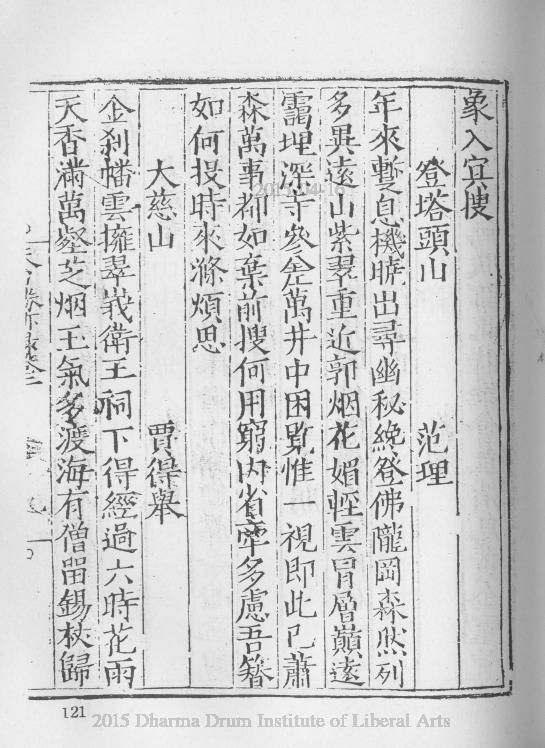 象入㝠搜
登塔頭山 范理
年來暫息機曉出尋幽秘纔登佛隴岡森然列
多異遠山紫翠重近郭烟花媚輕雲冒層巔遠
靄埋深寺參差萬井中困覧惟一視即此已蕭
森萬事都如棄前搜何用窮內省牽多慮吾簪
如何投時來滌煩思
大慈山 賈得舉
金刹幡雲擁翠峩衛王祠下得經過六時花雨
天香滿萬壑芝烟玉氣多渡海有僧畱錫杖歸
121
2015 Dharma Drum Institute of Liberal Arts